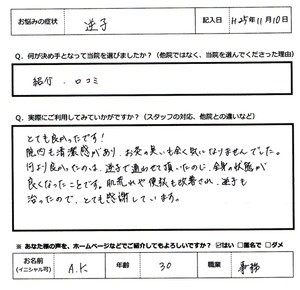 お悩みの症状 逆子 記入日 H25年11月10日
Q. 何が決め手となって当院を選びましたか？（他院ではなく、当院を選んでくださった理由）
紹介、口コミ
Q. 実際にご利用してみていかがですか？（スタッフの対応、他院との違いなど）
とても良かったです！
院内も清潔感があり、お灸の臭いも全く気になりませんでした。
何より良かったのは、逆子で通わせて頂いたのに、全身の状態が
良くなったことです。肌荒れや便秘も改善され、逆子も
治ったので、とても感謝しています。
※ あなた様の声を、ホームページなどでご紹介してもよろしいですか？ ☑はい □匿名で □ダメ
お名前 （イニシャル可） A.K 年齢 30 職業 事務